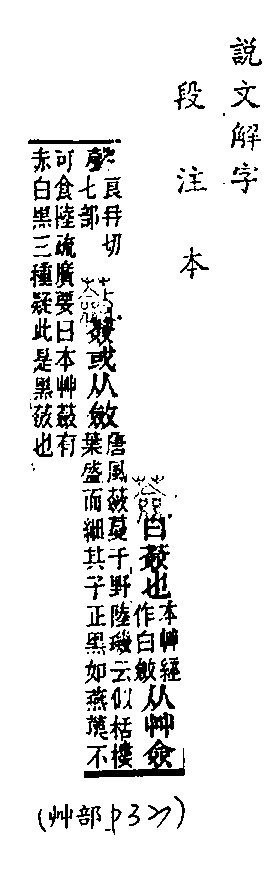 說文解字
段注本
薟白薟也本艸經
作白斂从艸僉
聲良冉切
七部
蘞薟或从斂唐風蘞蔓于野陸璣云似栝樓
葉盛而細其子正黑如燕薁不
可食陸疏廣要曰本艸蘞有
赤白黑三種疑此是黑蘞也
(艸部)